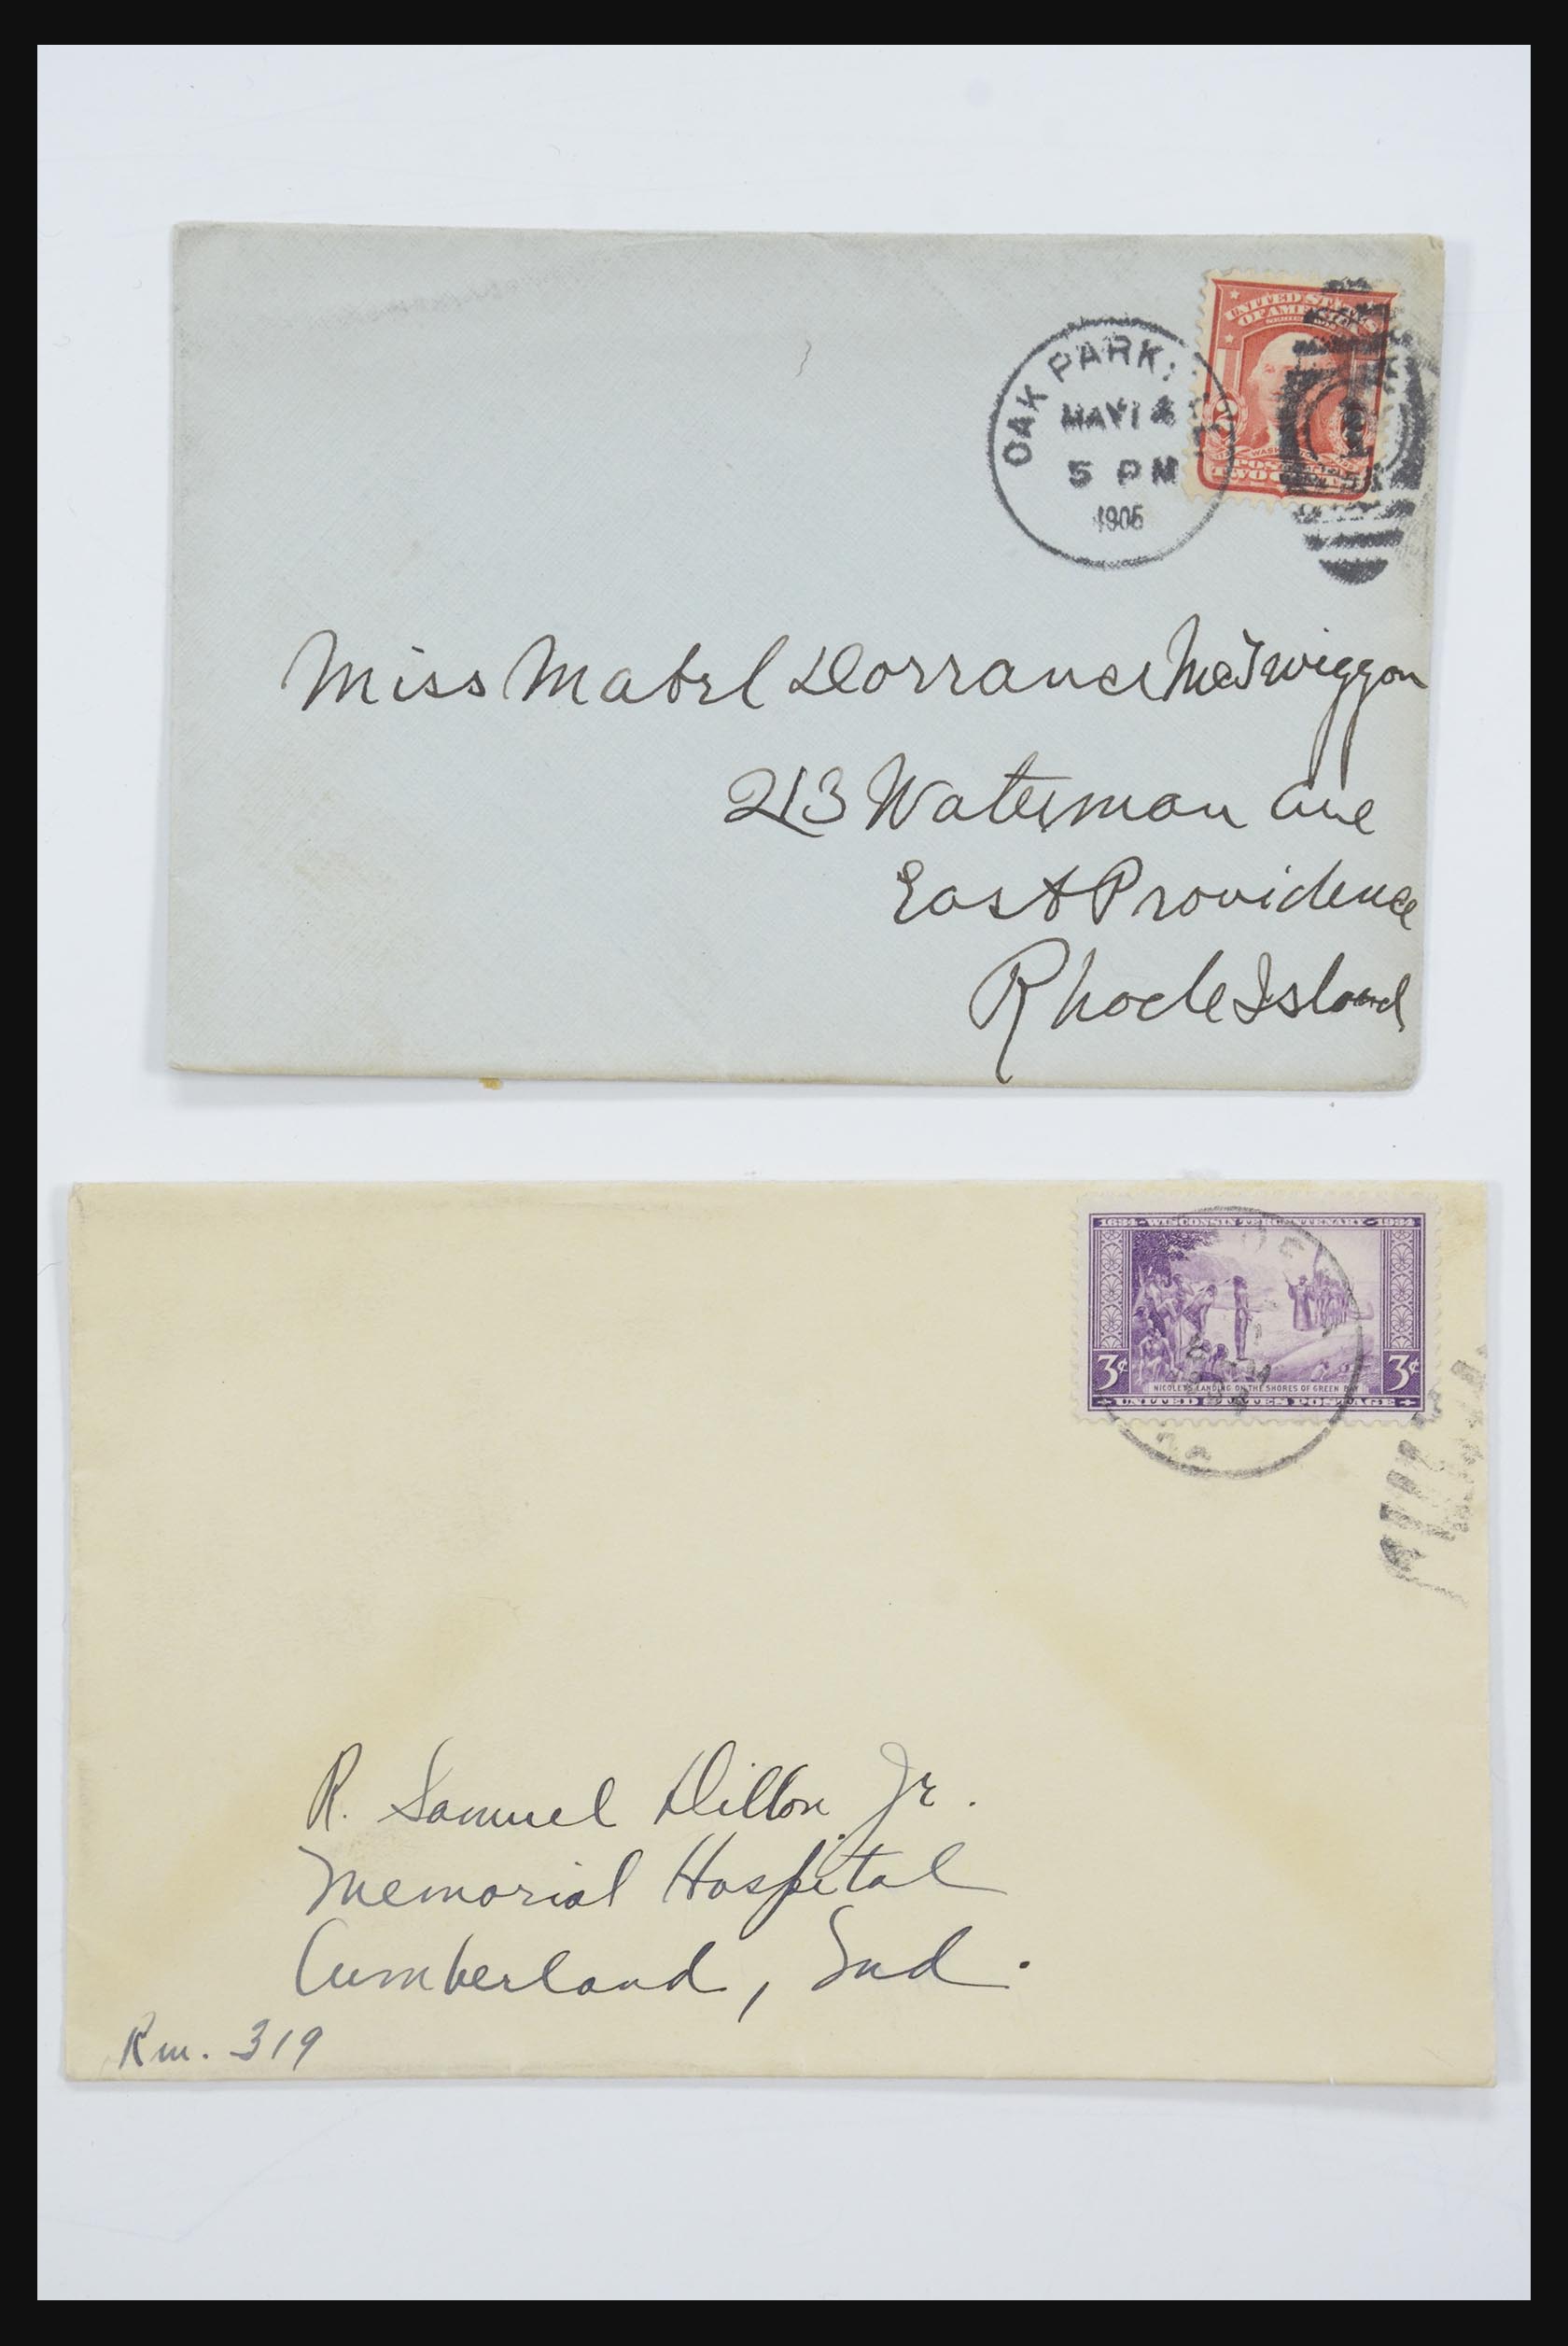 OAK PARK,
MAY 14
5 PM
1905
UNITED STATES
OF AMERICA
2
POSTAGE
TWO CENTS
1
Miss Mabel Dorrance McTwiggon
213 Waterman Ave
East Providence
Rhode Island
1634-WISCONSIN TERCENTENARY-1934
3¢ 3¢
NICOLET'S LANDING ON THE SHORES OF GREEN BAY
UNITED STATES POSTAGE
R. Samuel Dillon Jr.
Memorial Hospital
Cumberland, Ind.
Rm. 319